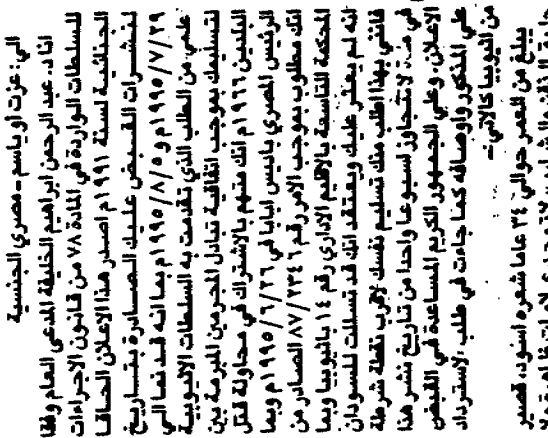 الي: عزت او ياسم - مصري الجنسية
انا د. عبد الرحمن ابراهيم الخليفة المدعى العام وفقا
للسلطات الواردة في المادة ٧٨ من قانون الاجراءات
الجنائية لسنة ١٩٩١م اصدر هذا الاعلان الحاقا
لنشرات القبض عليك الصادرة بتاريخ
١٩٩٥/٧/٢٩م و ١٩٩٥/٨/٥م بما انه قد نما الي
علمي من الطلب الذي تقدمت به السلطات الاثيوبية
لتسليمك بموجب اتفاقية تبادل المجرمين المبرمة بين
البلدين ١٩٦٦م انك متهم بالاشتراك في محاولة قتل
الرئيس المصري باديس ابابا في ١٩٩٥/٦/٢٦م وبما
انك مطلوب بموجب الامر رقم ٨٧/٢٣٤٦ الصادر من
المحكمة التاسعة بالاقليم الاداري رقم ١٤ باثيوبيا وبما
انه لم يعثر عليك ويعتقد انك قد تسللت للسودان
فانني بهذا اطلب منك تسليم نفسك لاقرب نقطة شرطة
في مدة لا تتجاوز اسبوعا واحدا من تاريخ نشر هذا
الاعلان، وعلي الجمهور الكريم المساعدة في القبض
علي المذكور واوصافه كما جاءت في طلب الاسترداد
من اثيوبيا كالاتي:-
يبلغ من العمر حوالي ٣٤ عاما شعره اسود، قصير